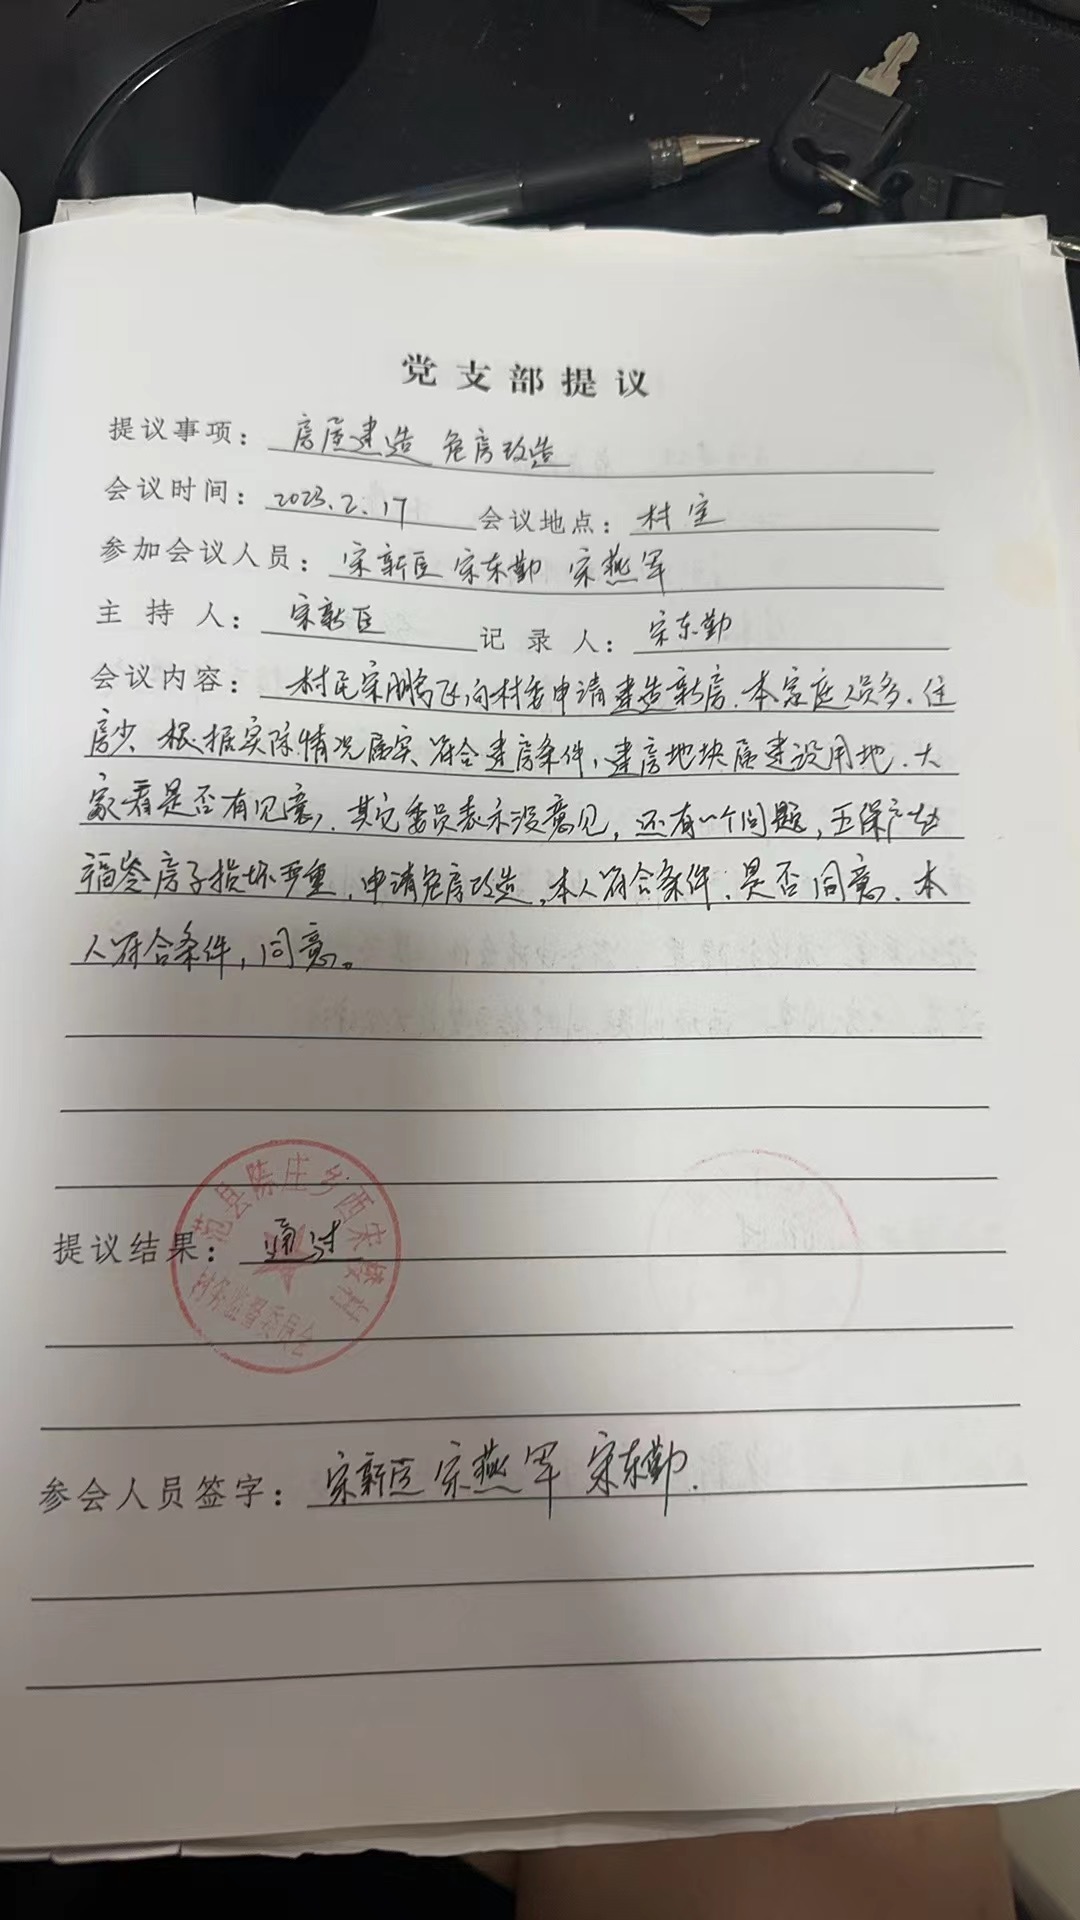 党支部提议
提议事项：房屋建造 危房改造
会议时间：2023.2.17 会议地点：村室
参加会议人员：宋新臣 宋东勤 宋燕军
主持人：宋新臣 记录人：宋东勤
会议内容：村民宋鹏飞向村委申请建造新房.本家庭人员多.住
房少.根据实际情况属实.符合建房条件,建房地块属建设用地.大
家看是否有见意,其它委员表示没意见,还有一个问题,五保户赵
福岺房子损坏严重,申请危房改造,本人符合条件.是否同意.本
人符合条件,同意。
提议结果：通过
范县陈庄乡西宋楼村
村务监督委员会
参会人员签字：宋新臣 宋燕军 宋东勤.